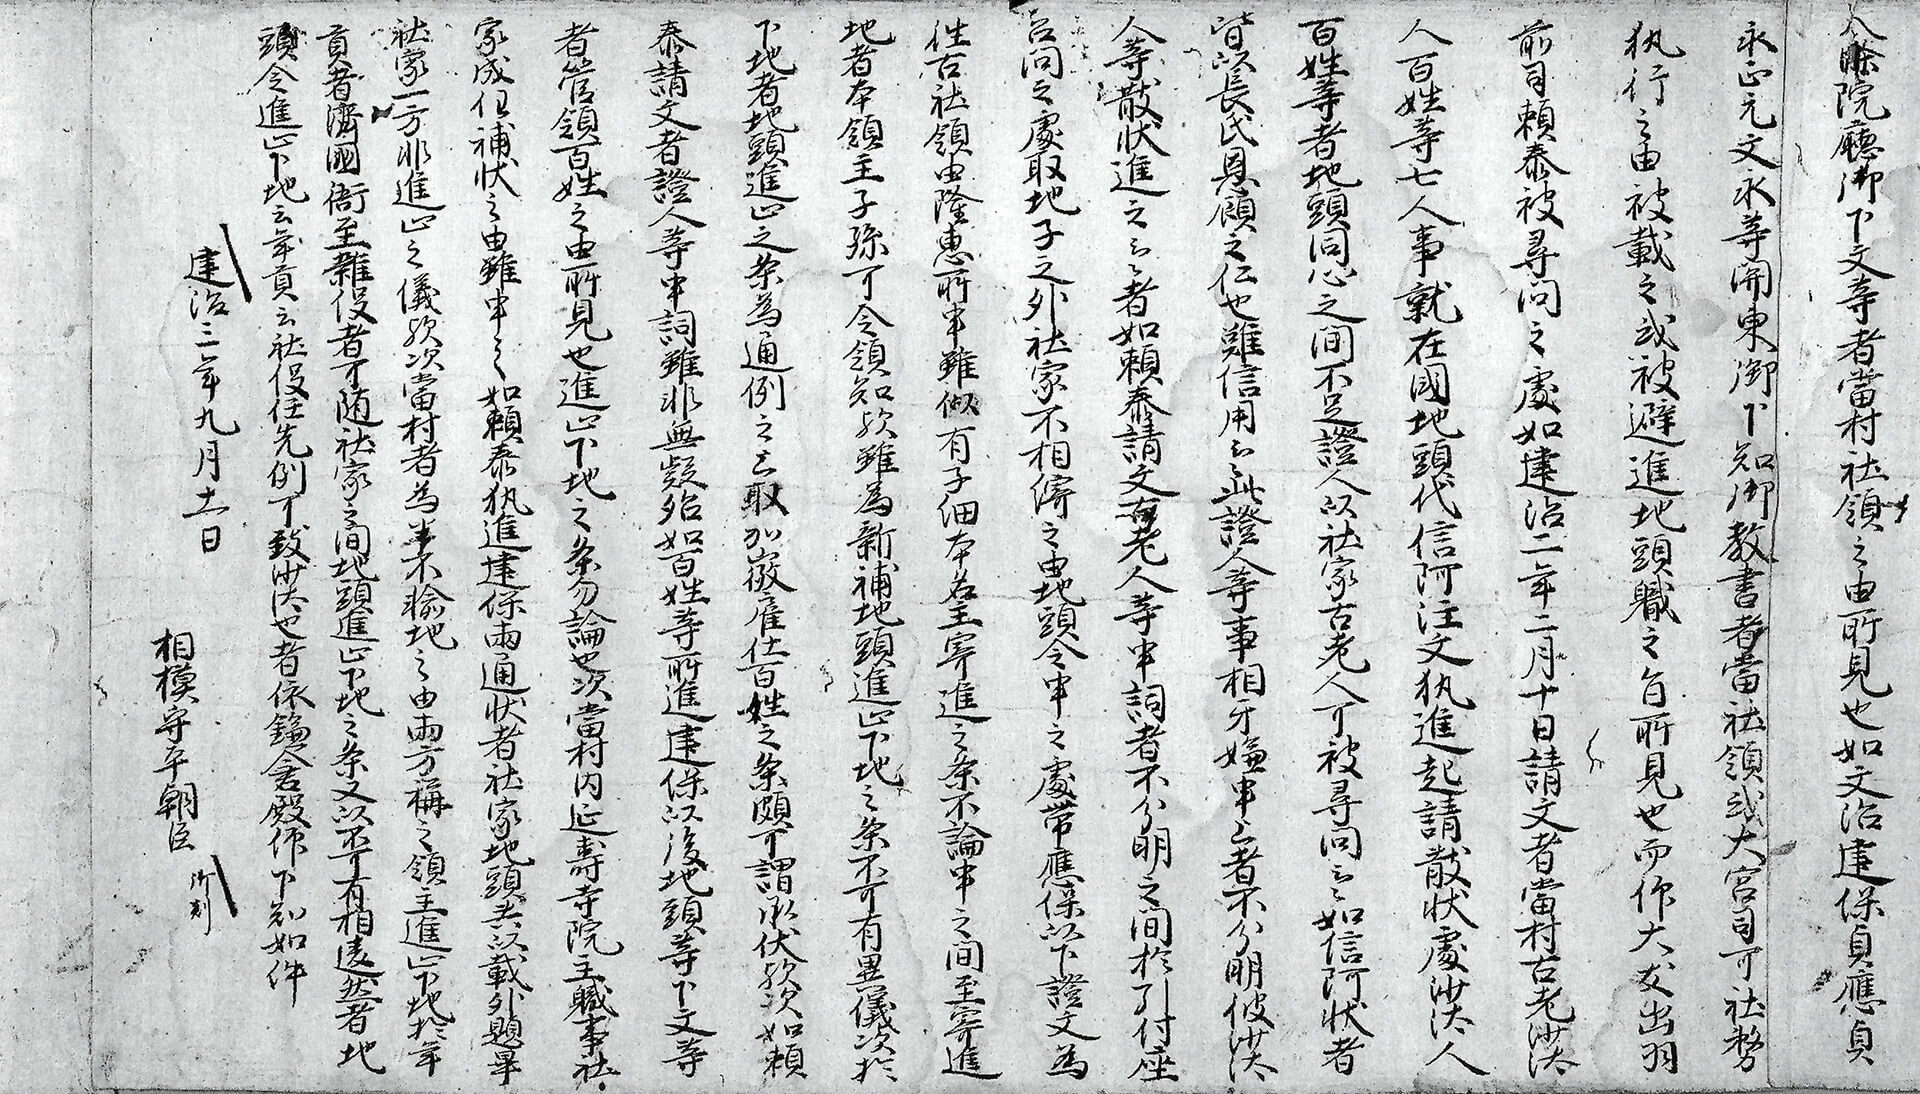 人縣院廳御下文等者當村社領之由所見也如文治建保貞應貞
永正元文永等關東御下知御教書者當社領或大宮司可社務
執行之由被載之或被避進地頭職之旨所見也而仰大友出羽
前司頼泰被尋問之處如建治二年二月十日請文者當村古老沙汰
人百姓等七人事就在國地頭代信阿注文執進起請散状處沙汰人
百姓等者地頭同心之間不足證人以社家古老人可被尋問云々如信阿状者
皆以長氏恩顧之仁也難信用云々此證人等事相互嫌申之者不分明彼沙汰
人等散状進之云々者如頼泰請文古老人等申詞者不分明之間於引付座
召問之處取地子之外社家不相綺之由地頭令申之處帶應保以下證文為
往古社領由隆惠所申雖似有子細本名主寄進之条不論申之間至寄進
地者本領主子孫可令領知欤雖為新補地頭進止下地之条不可有異儀次於
下地者地頭進止之条為通例之上取加徴雇仕百姓之条頗可謂承伏欤次如頼
泰請文者證人等申詞雖非無疑殆如百姓等所進建保以後地頭等下文等
者管領百姓之由所見也進止下地之条勿論也次當村内延壽寺院主職事社
家成任補状之由雖申之如頼泰執進建保兩通状者社家地頭共以載外題畢
社家一方非進止之儀欤次當村者為半不輸地之由兩方稱之領主進止下地於年
貢者濟國衙至雜役者可随社家之間地頭進止下地之条又以不可有相違然者地
頭令進止下地云年貢云社役任先例可致沙汰也者依鎌倉殿仰下知如件
建治三年九月十一日
相模守平朝臣 御判